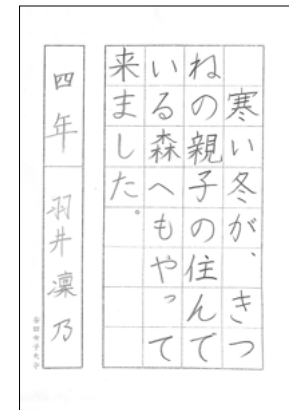 寒い冬が、きつ
ねの親子の住んで
いる森へもやって
来ました。
四年 羽井凜乃